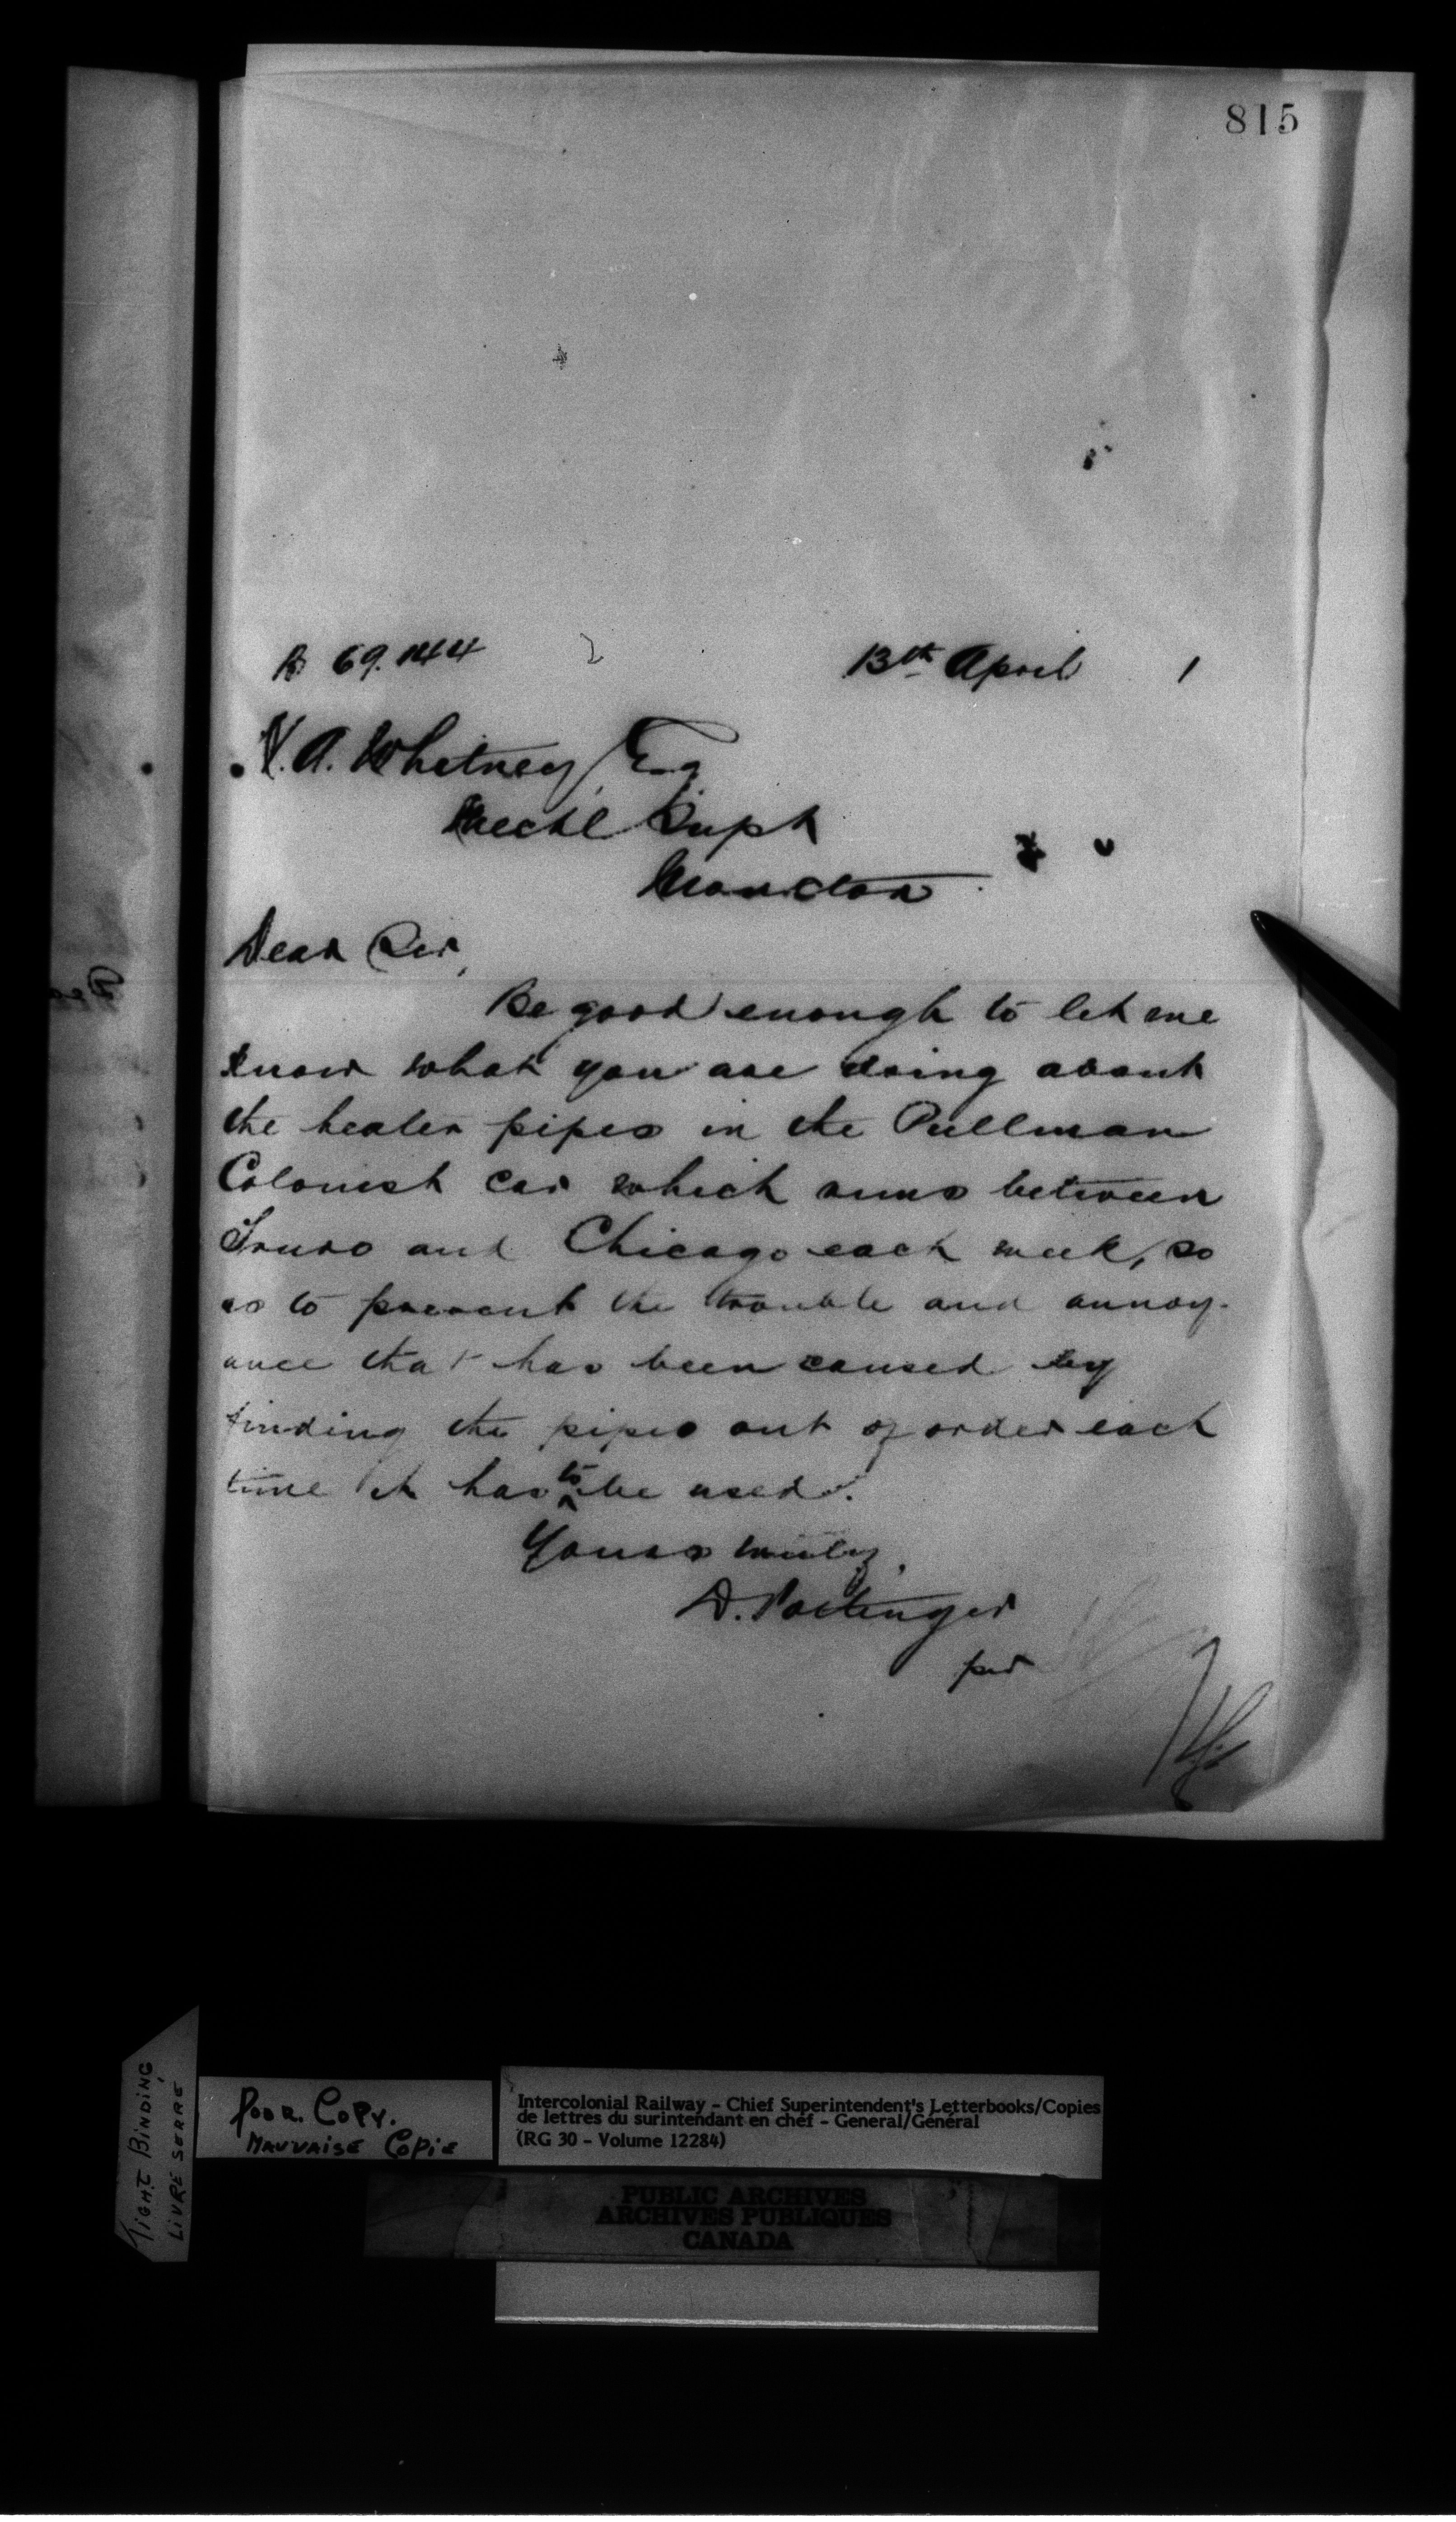 815
13th April 1
A. Whitney, Esq
Mechl Supt
Moncton
Dear Sir,
Be good enough to let me
know what you are doing about
the heater pipes in the Pullman
Colonist car which runs between
Truro and Chicago each week, so
as to prevent the trouble and annoy-
ance that has been caused by
finding the pipes out of order each
time it has to be used.
Yours truly,
D. Pottinger
per
TIGHT BINDING
LIVRE SERRÉ
POOR COPY.
MAUVAISE COPIE
Intercolonial Railway - Chief Superintendent's Letterbooks/Copies
de lettres du surintendant en chef - General/Général
(RG 30 - Volume 12284)
PUBLIC ARCHIVES
ARCHIVES PUBLIQUES
CANADA